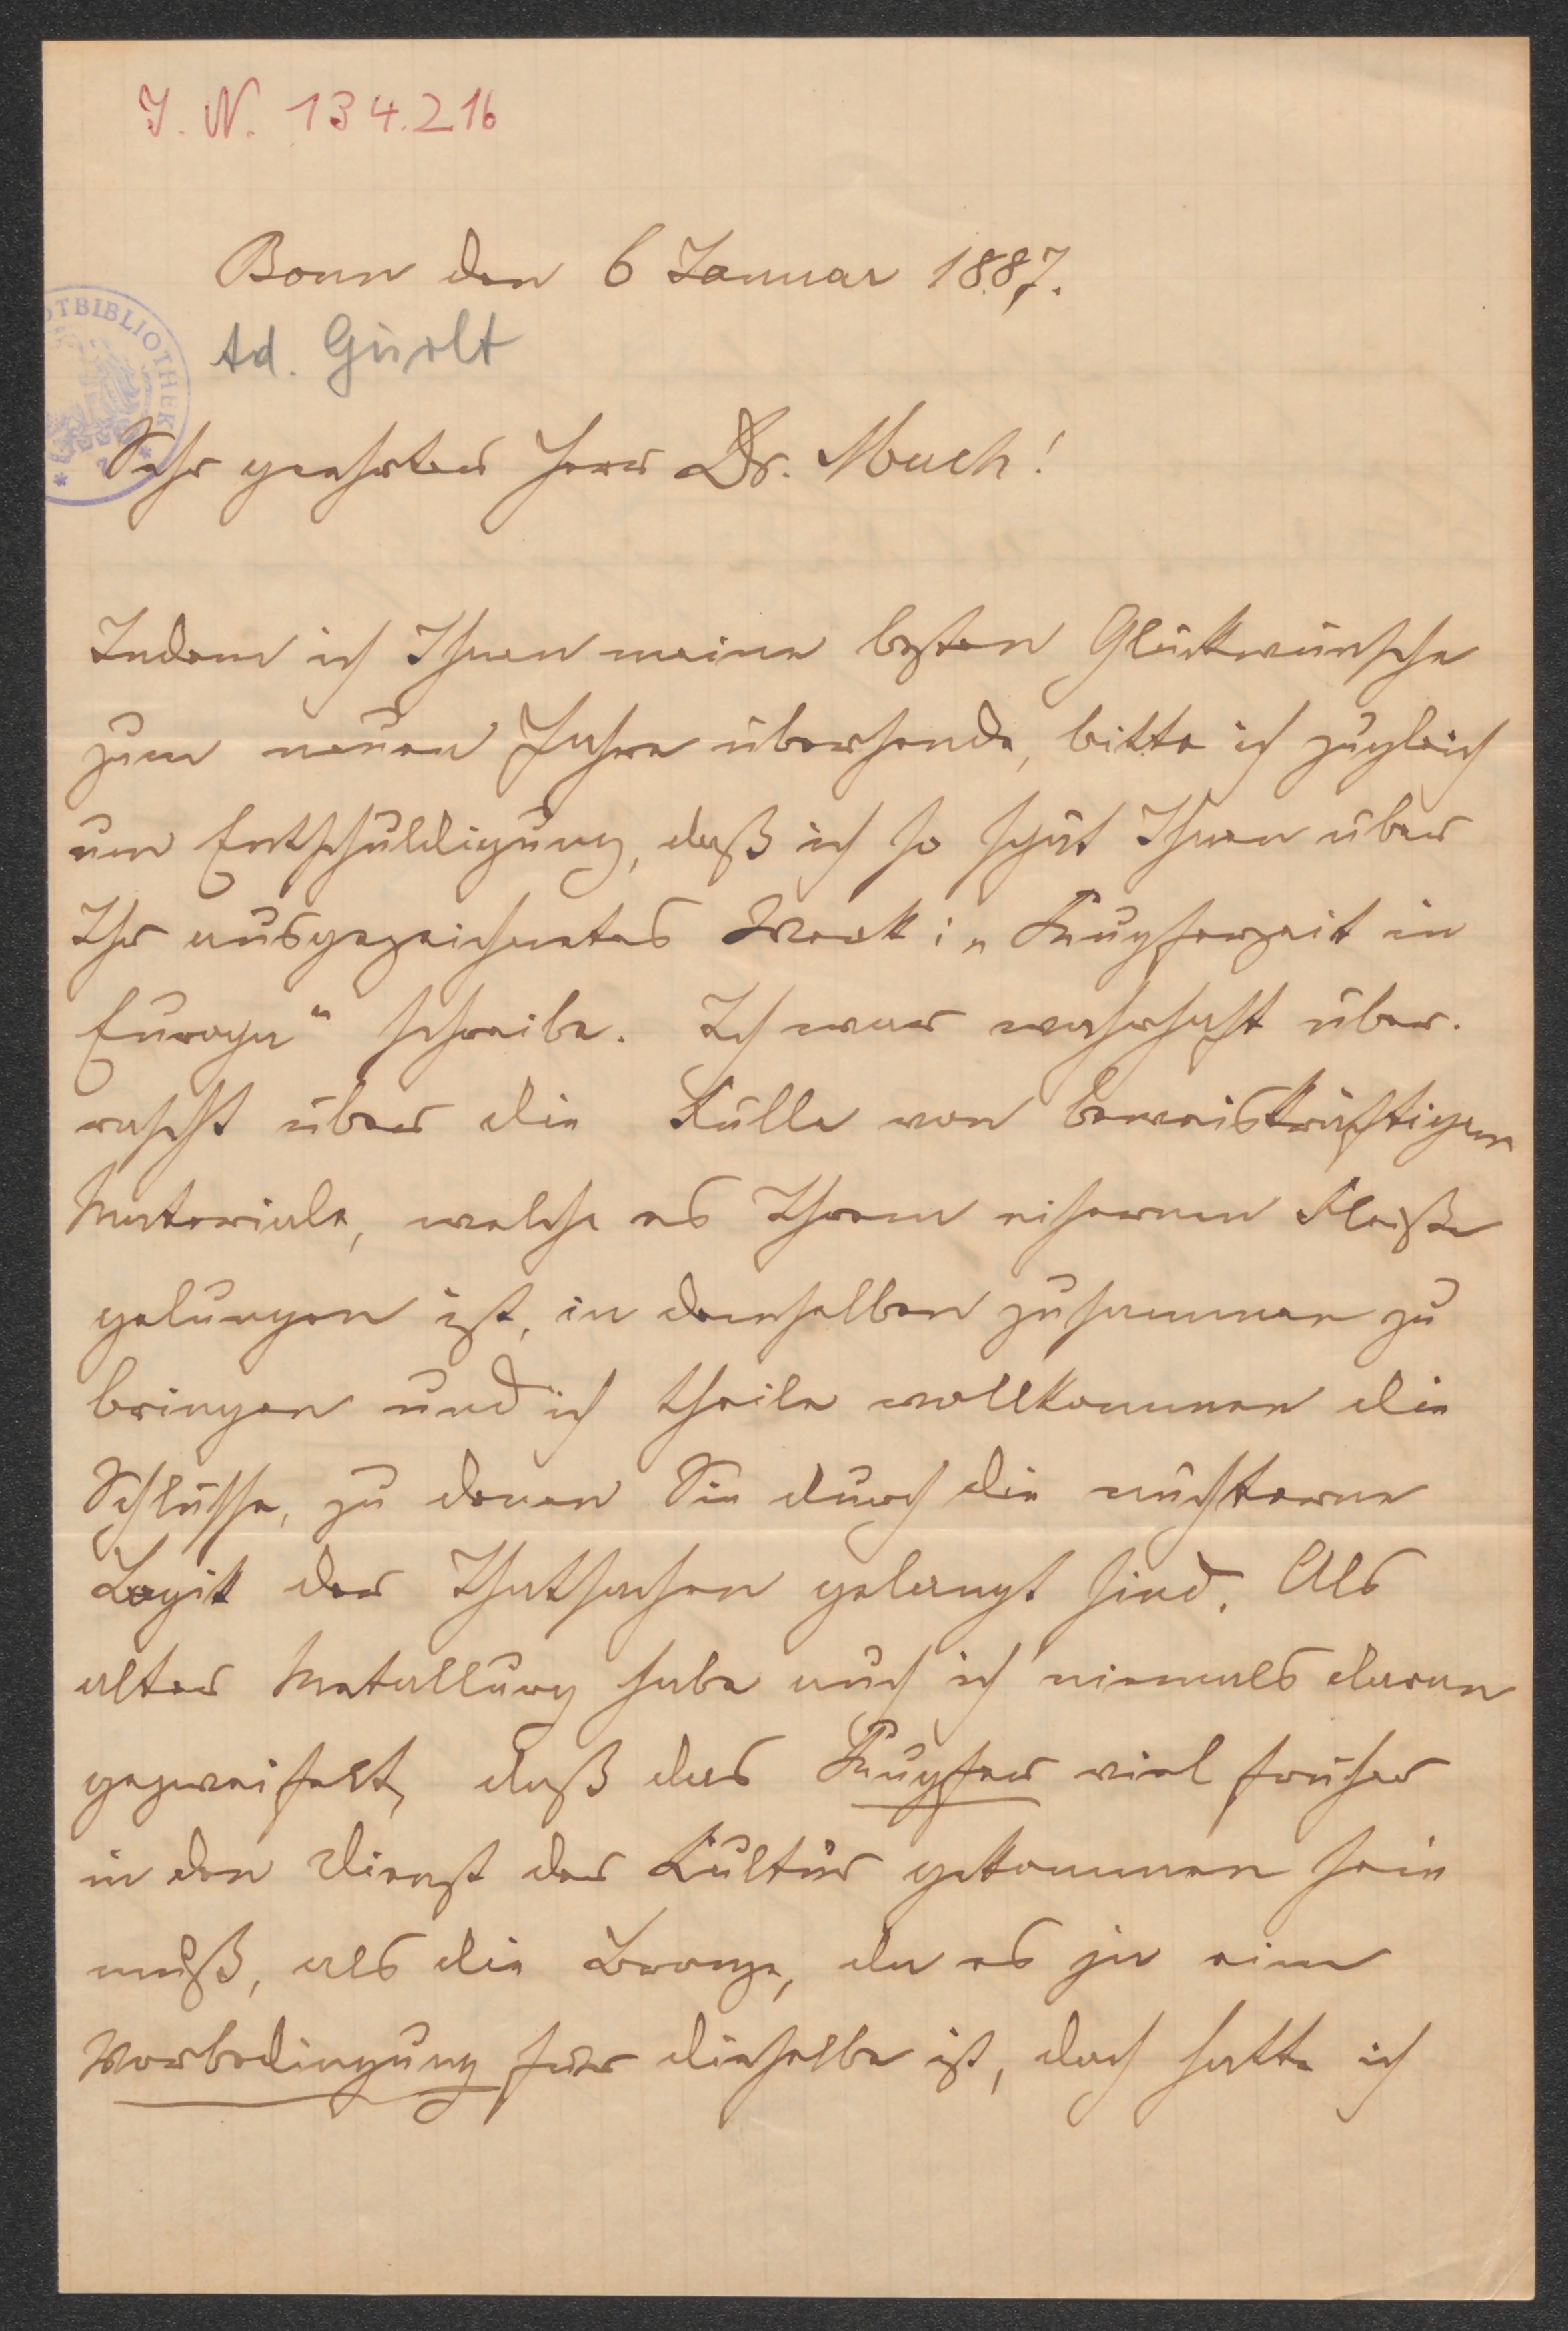 I. N. 134.216
Bonn den 6 Januar 1887.
Ad. Gurlt
OTBIBLIOTHEK
Sehr geehrter Herr Dr. Much!
Indem ich Ihnen meine besten Glückwünsche
zum neuen Jahre übersende, bitte ich zugleich
um Entschuldigung, daß ich so spät Ihnen über
Ihr ausgezeichnetes Werk: „Kupferzeit in
Europa“ schreibe. Ich war wahrhaft über-
rascht über die Fülle von beweiskräftigem
Materiale, welche es Ihrem eisernen Fleiße
gelungen ist, in demselben zusammen zu
bringen und ich theile vollkommen die
Schlüsse, zu denen Sie durch die nüchterne
Logik der Thatsachen gelangt sind. Als
alter Metallurg habe auch ich niemals daran
gezweifelt, daß das Kupfer viel früher
in den Dienst der Kultur gekommen sein
muß, als die Bronze, da es ja eine
Vorbedingung für dieselbe ist, doch hatte ich